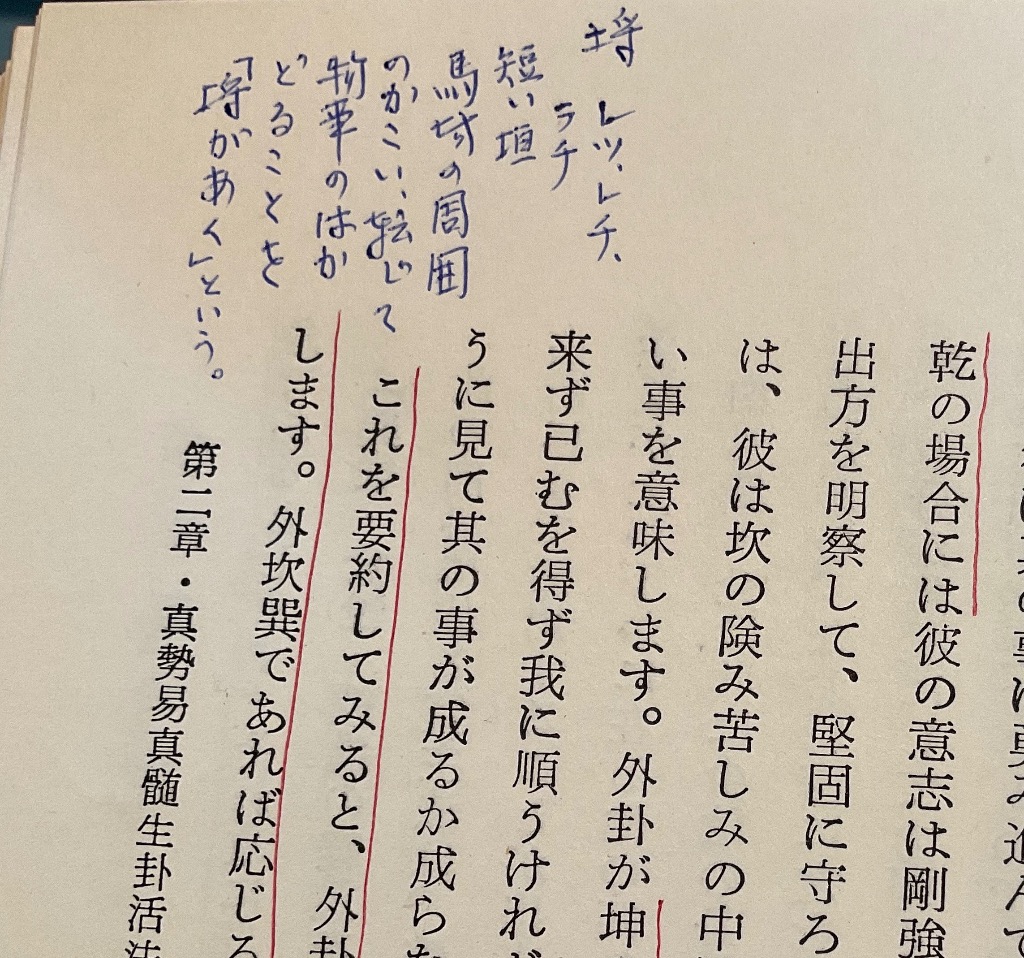 埒 レツ、レチ、
ラチ
短い垣
馬場の周囲
のかこい、転じて
物事のはか
どることを
「埒があく」という。
乾の場合には彼の意志は剛強
出方を明察して、堅固に守ろ
は、彼は坎の険み苦しみの中
い事を意味します。外卦が坤
来ず已むを得ず我に順うけれ
うに見て其の事が成るか成ら
これを要約してみると、外卦
します。外坎巽であれば応じ
第二章・真勢易真髄生卦活法